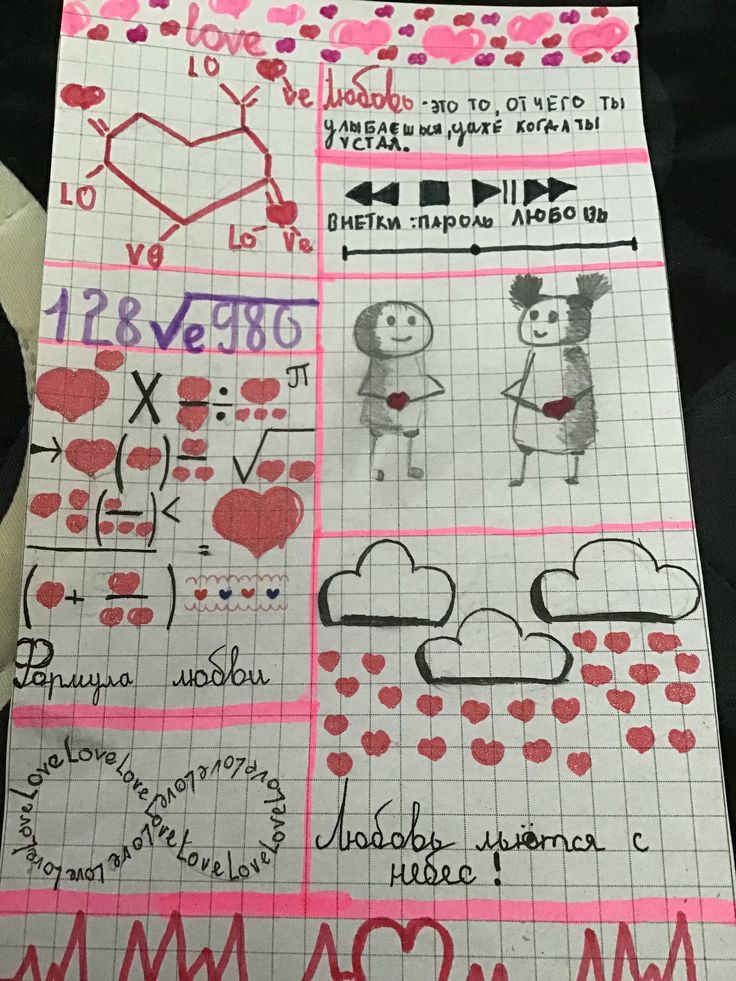 love
LO
ve
LO
Lo
ve
ve
Любовь - это то, от чего ты
улыбаешься, даже когда ты
устал.
ВНЕТКИ :ПАРОЛЬ ЛЮБОВЬ
128√e980
X ÷ П
( ) = √
( ) <
=
( + )
Формула любви
LoveLoveLoveLoveLoveLoveLoveLoveLoveLoveLoveLove
Любовь льются с
небес!